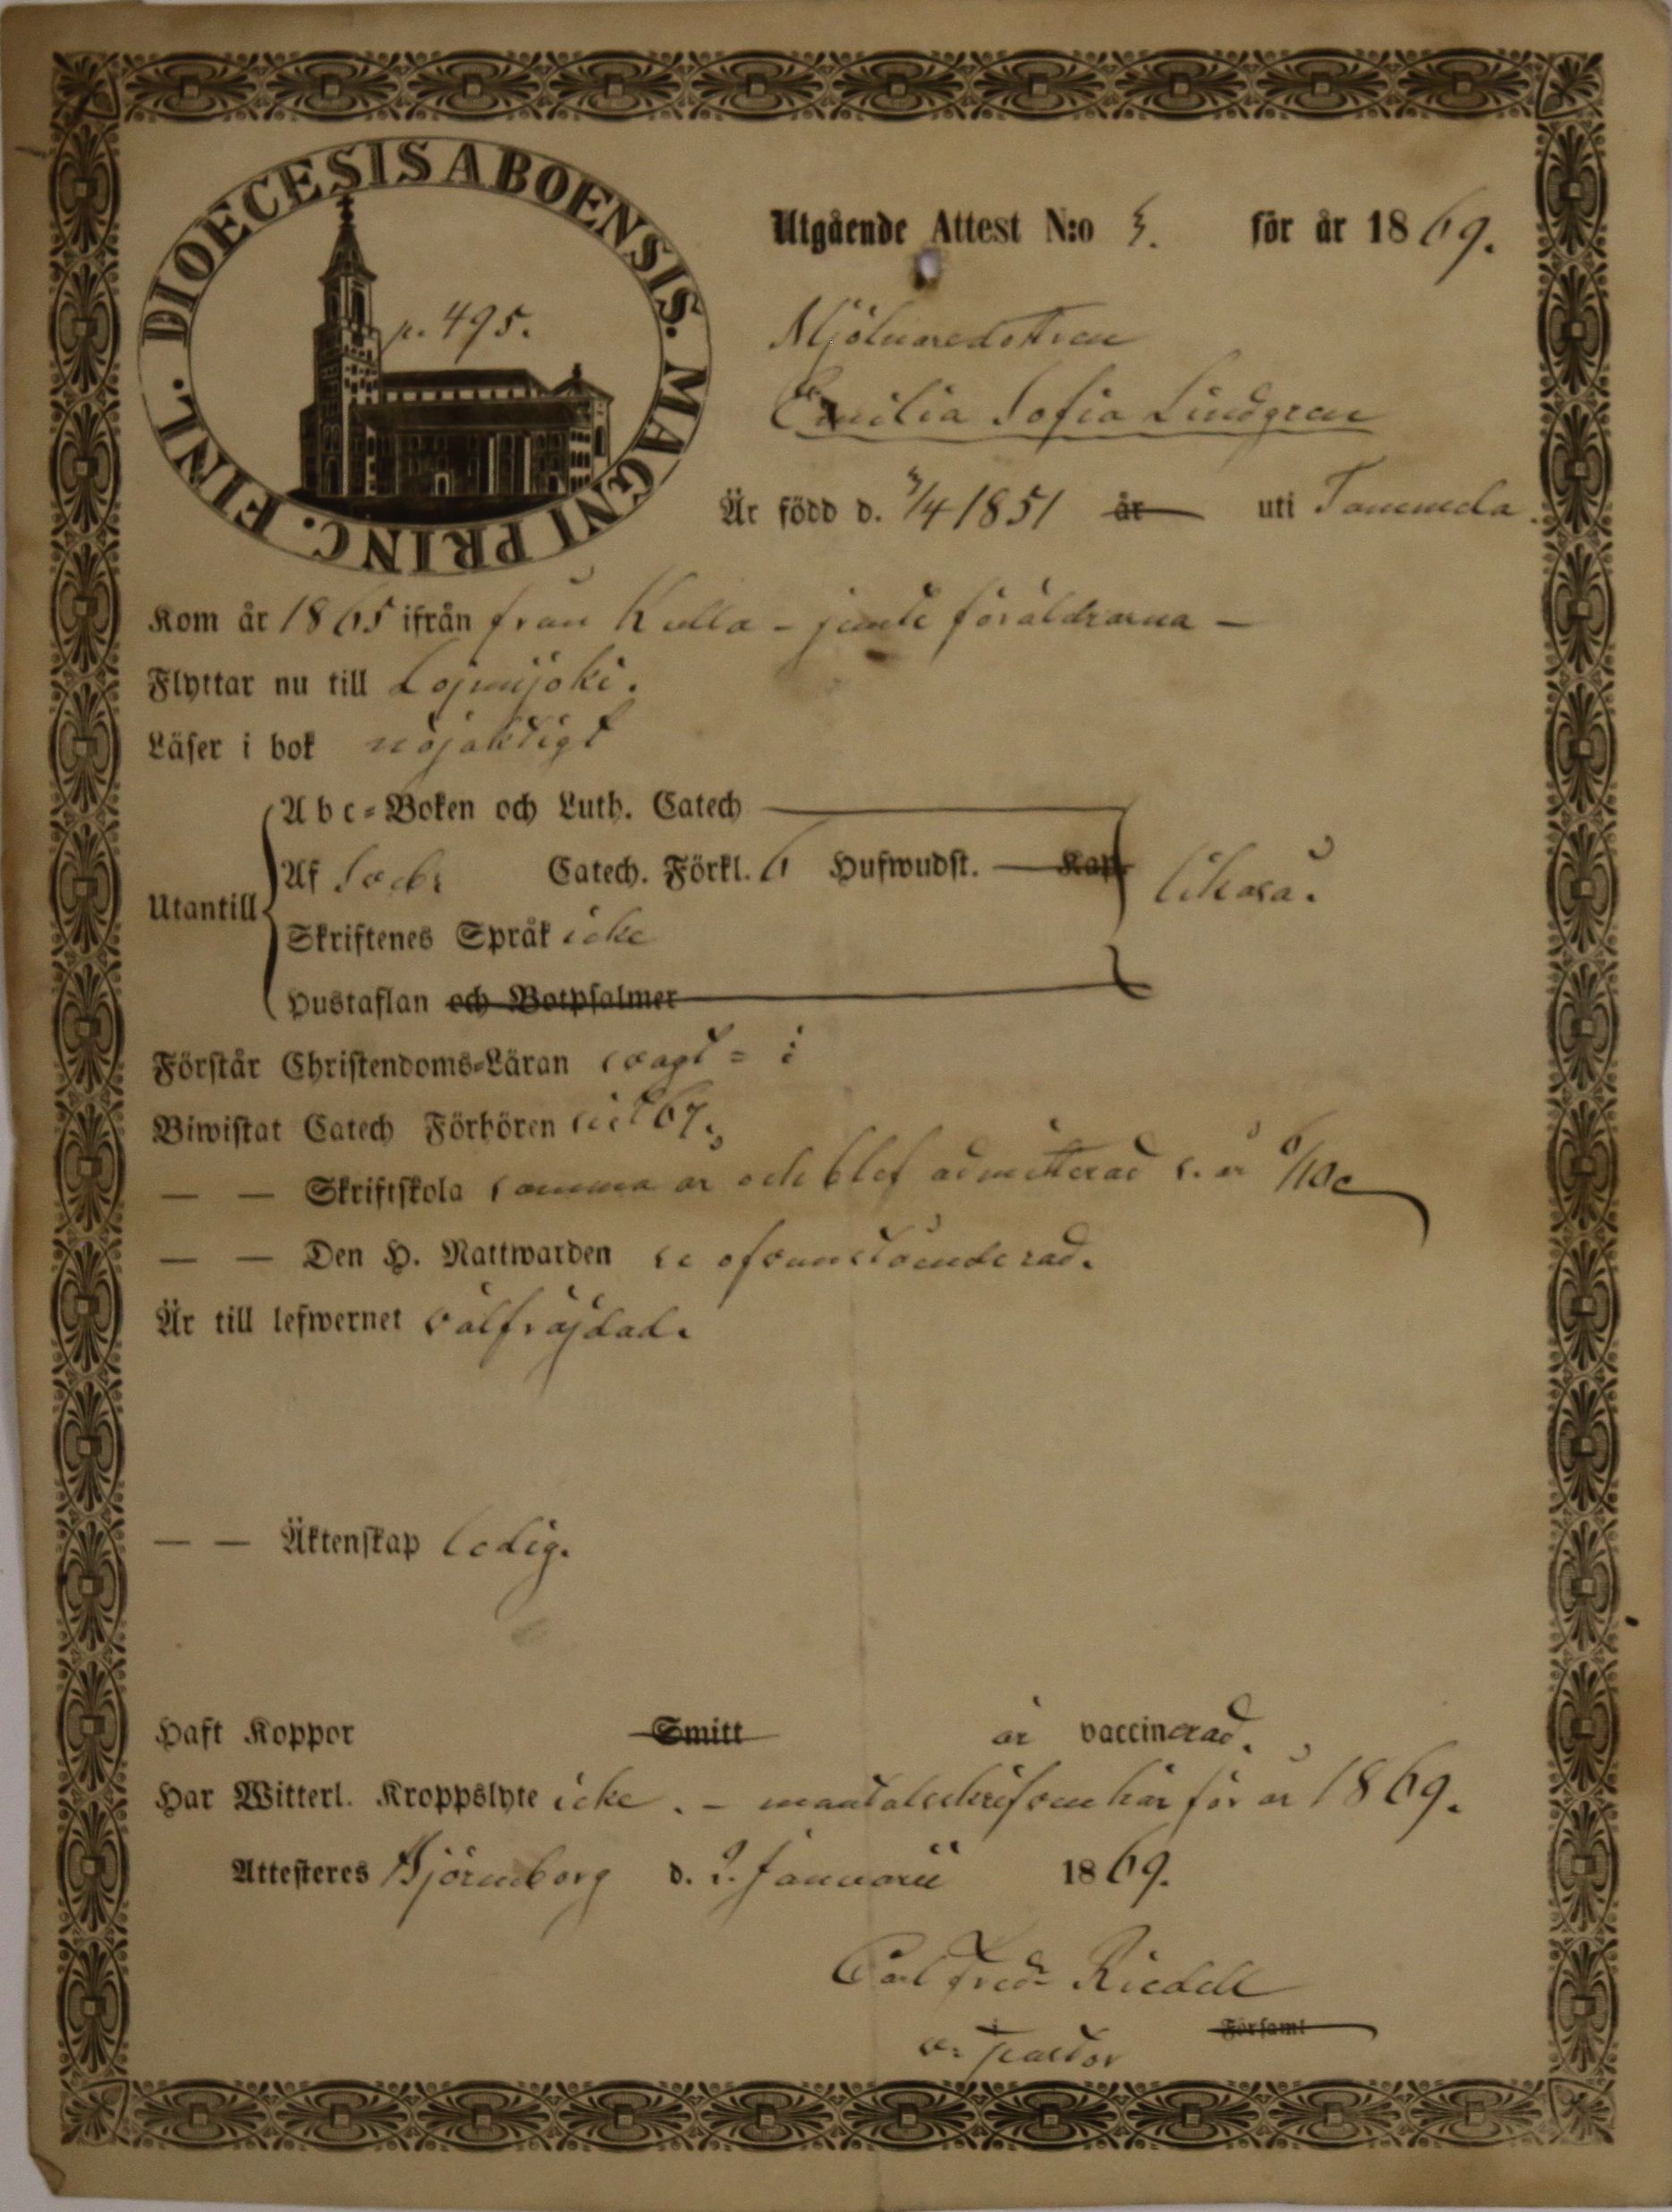 DIOECESIS ABOENSIS. MAGNI PRINC. FINL.
p. 495.
Utgående Attest N:o 3. för år 1869.
Mjölnaredottren
Emilia Sofia Lindgren
Är född d. 3/4 1851 år uti Tammela.
Kom år 1865 ifrån från Kulla – jemte föräldrarna –
Flyttar nu till Lojmijoki.
Läser i bok nöjaktigt
Abc-Boken och Luth. Catech
Utantill
Af Sveb: Catech. Förkl. 6 Hufwudst. Kap likaså.
Skriftenes Språk icke
Hustaflan och Botpsalmer
Förstår Christendoms-Läran svagt
Biwistat Catech Förhören sist 67.
— — Skriftskola samma år och blef admitterad s. år 6/10
— — Den H. Nattwarden se ofvanstående rad.
Är till lefwernet välfräjdad.
— — Äktenskap ledig.
Haft Koppor Smitt är vaccinerad.
Har Witterl. Kroppslyte icke. – mantalsskrifven här för år 1869.
Attesteres Björneborg d. 2. Januarii 1869.
Carl Fredr Riedell
v. pastor Församl